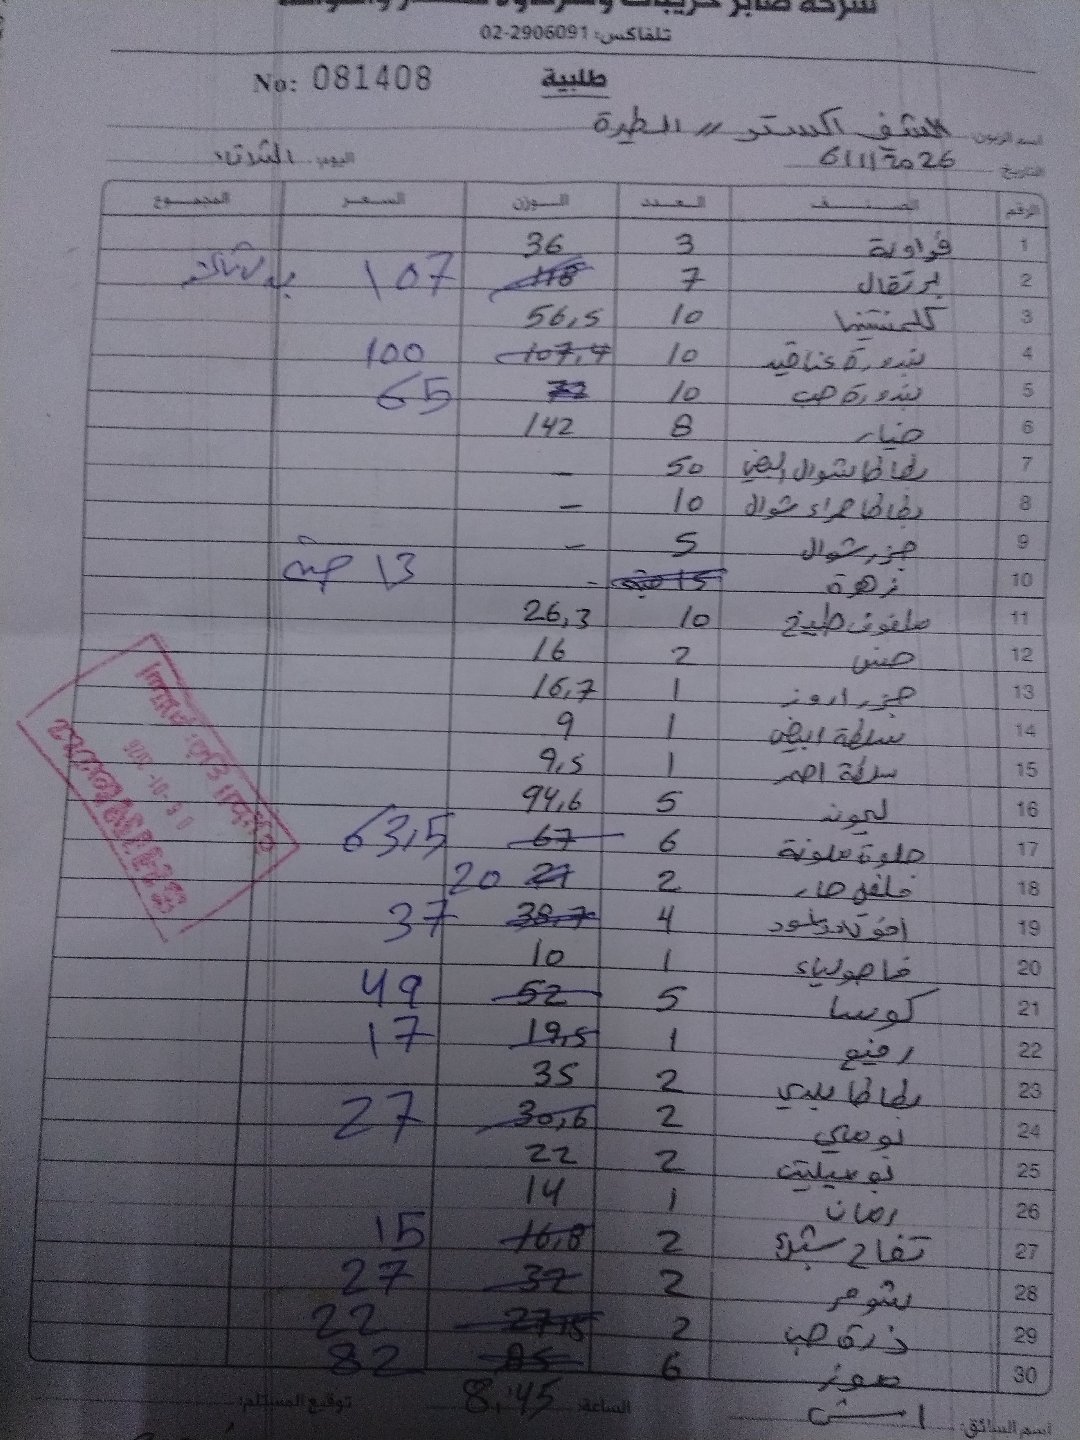 تلفاكس: 02-2906091
No: 081408 طلبية
اسم الزبون: الشف اكسترا // الطيرة
التاريخ 6/1/2026 اليوم: الثلاثاء
الرقم الصنف العدد الوزن السعر المجموع
1 فراولة 3 36
2 برتقال 7 118 107
3 كلمنتينا 10 56,5
4 بندورة عناقيد 10 107,4 100
5 بندورة حب 10 72 65
6 خيار 8 142
7 بطاطا شوال ابيض 50 -
8 بطاطا حمراء شوال 10 -
9 جزر شوال 5 -
10 زهرة 15 - 13
11 ملفوف طبيخ 10 26,3
12 خس 2 16
13 جزر 1 16,7
14 سلطة ابيض 1 9
15 سلطة احمر 1 9,5
16 ليمونة 5 94,6
17 حلوة ملونة 6 67 63,5
18 فلفل حار 2 21 20
19 4 38,7 37
20 فاصولياء 1 10
21 كوسا 5 52 49
22 رفيع 1 19,5 17
23 بطاطا بلدي 2 35
24 بوملي 2 30,6 27
25 2 22
26 رمان 1 14
27 تفاح 2 16,8 15
28 شومر 2 32 27
29 ذرة حب 2 27,5 22
30 موز 6 85 82
اسم السائق: الساعة: 8:45 توقيع المستلم: